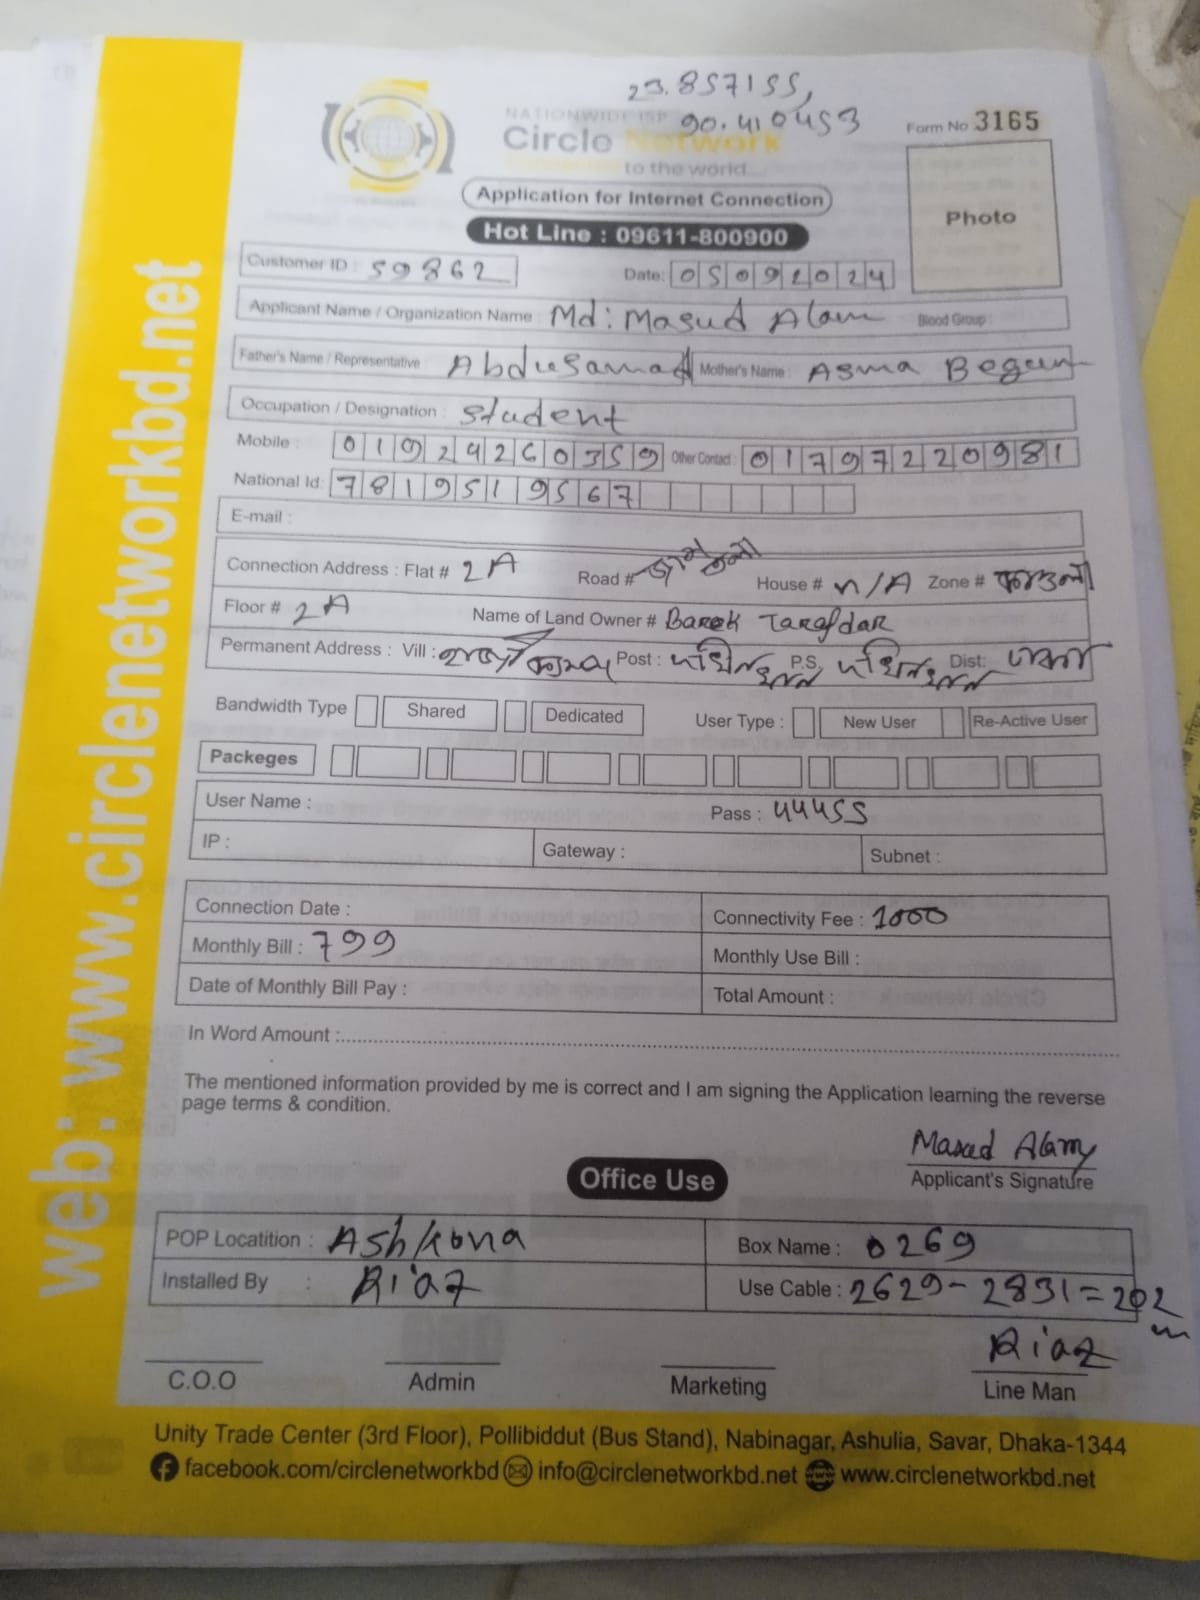 23.857155,
90.410453
NATIONWIDE ISP
Circle Network
to the world...
Form No 3165
Application for Internet Connection
Photo
Hot Line : 09611-800900
Customer ID : 59862 Date: 05092024
Applicant Name / Organization Name : Md: Masud Alam Blood Group :
Father's Name / Representative : Abdusamad Mother's Name : Asma Begum
Occupation / Designation : Student
Mobile : 01924260359 Other Contact : 01797220981
National Id: 7819519567
E-mail :
Connection Address : Flat # 2A Road # House # n/A Zone #
Floor # 2A Name of Land Owner # Barek Tarafdar
Permanent Address : Vill : Post : দক্ষিনখান P.S. দক্ষিনখান Dist: ঢাকা
Bandwidth Type Shared Dedicated User Type : New User Re-Active User
Packeges
User Name : Pass : 44455
IP : Gateway : Subnet :
Connection Date : Connectivity Fee : 1000
Monthly Bill : 799 Monthly Use Bill :
Date of Monthly Bill Pay : Total Amount :
In Word Amount :
The mentioned information provided by me is correct and I am signing the Application learning the reverse
page terms & condition.
Masud Alam
Applicant's Signature
Office Use
POP Locatition : Ashkona Box Name : 0269
Installed By : Riaz Use Cable : 2629-2831=202
m
Riaz
C.O.O Admin Marketing Line Man
Unity Trade Center (3rd Floor), Pollibiddut (Bus Stand), Nabinagar, Ashulia, Savar, Dhaka-1344
facebook.com/circlenetworkbd info@circlenetworkbd.net www.circlenetworkbd.net
web: www.circlenetworkbd.net